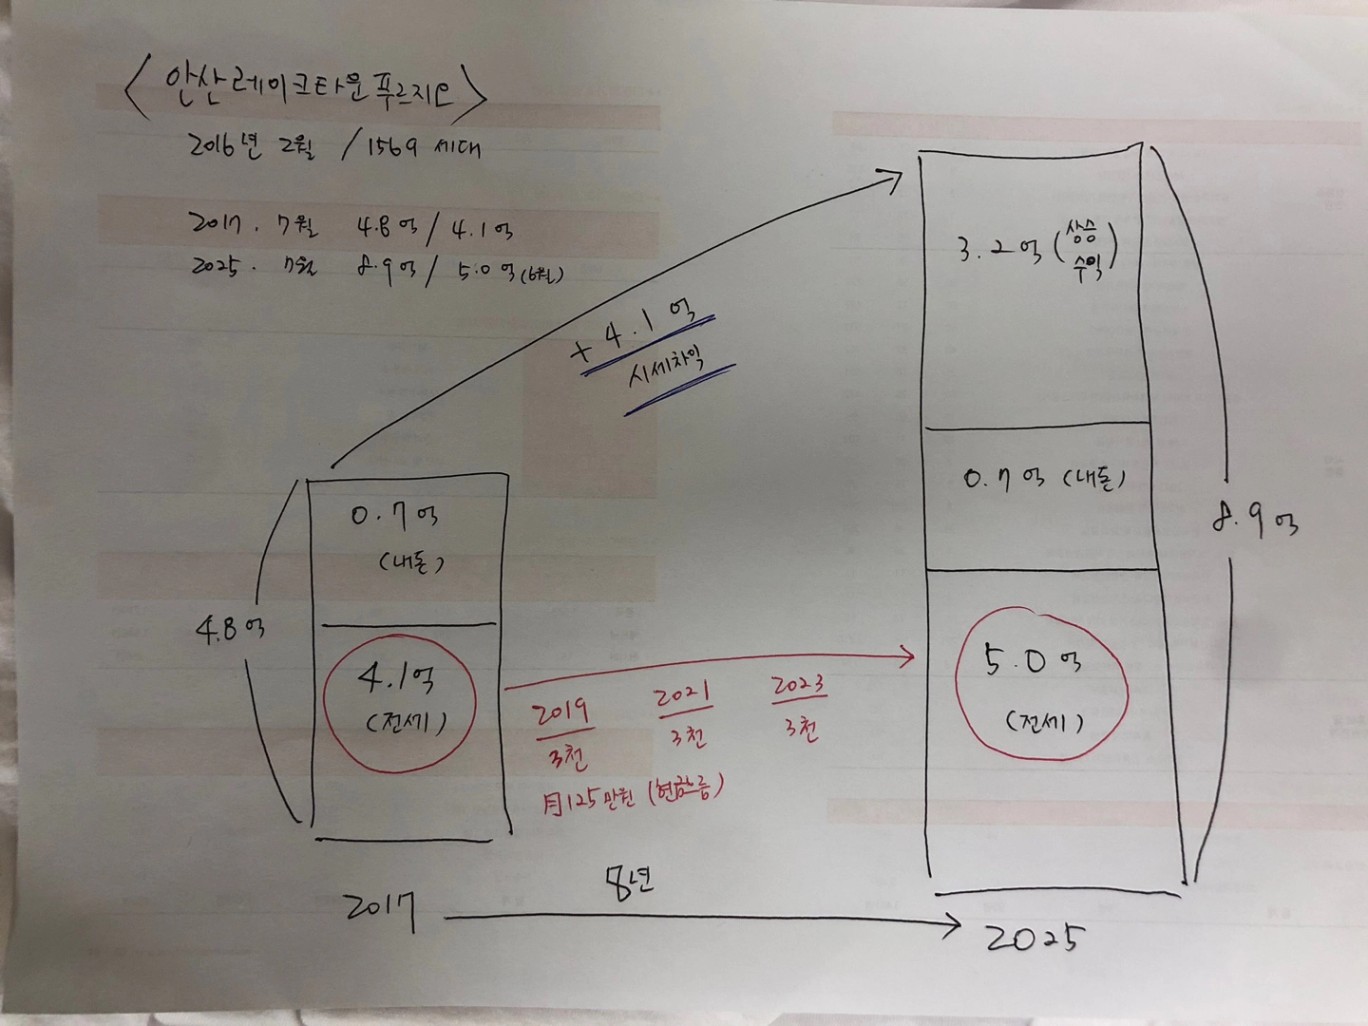 <안산레이크타운푸르지오>
2016년 2월 / 1569 세대
2017. 7월 4.8억 / 4.1억
2025. 7월 8.9억 / 5.0억 (6월)
+ 4.1억
시세차익
4.8억
0.7억
(내돈)
4.1억
(전세)
2019
3천
2021
3천
2023
3천
月125만원 (현금흐름)
3.2억 (상승
수익)
0.7억 (내돈)
5.0억
(전세)
8.9억
2017
8년
2025